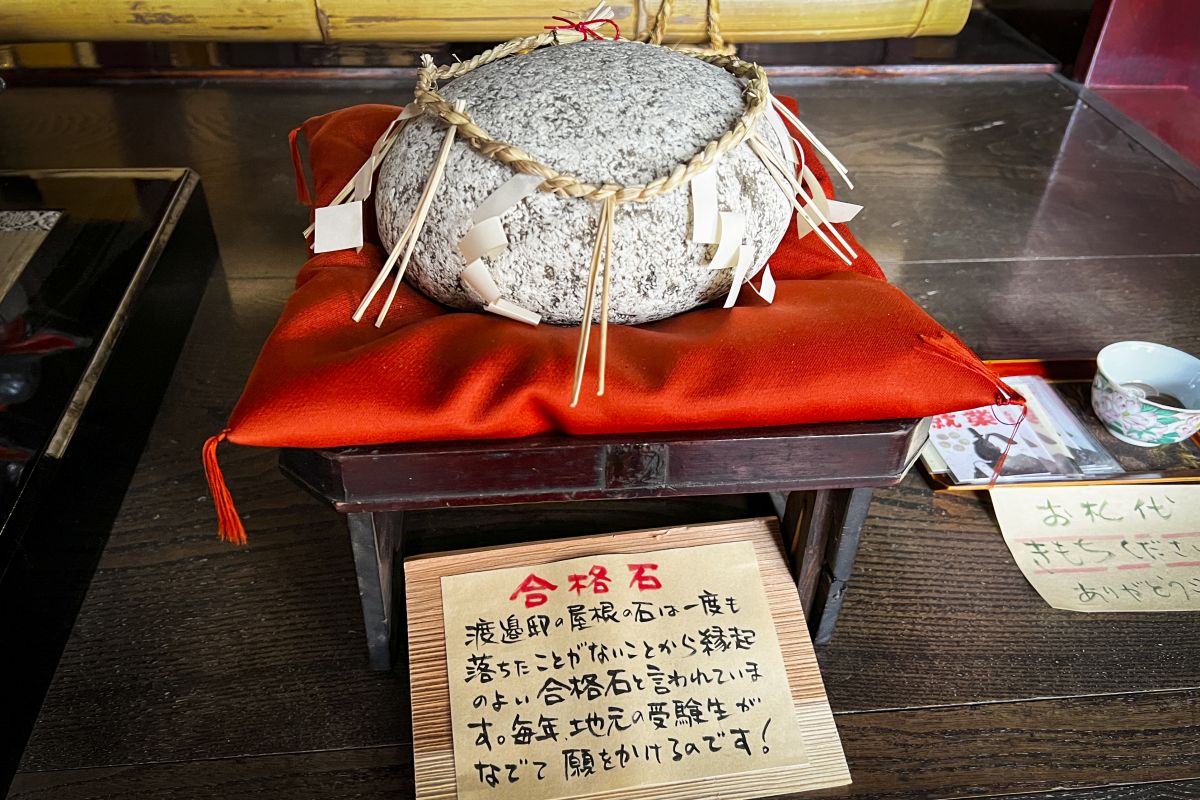 合格石
渡邉邸の屋根の石は一度も
落ちたことがないことから縁起
のよい合格石と言われていま
す。毎年、地元の受験生が
なでて願をかけるのです!
お札代
きもちくださ
ありがとう